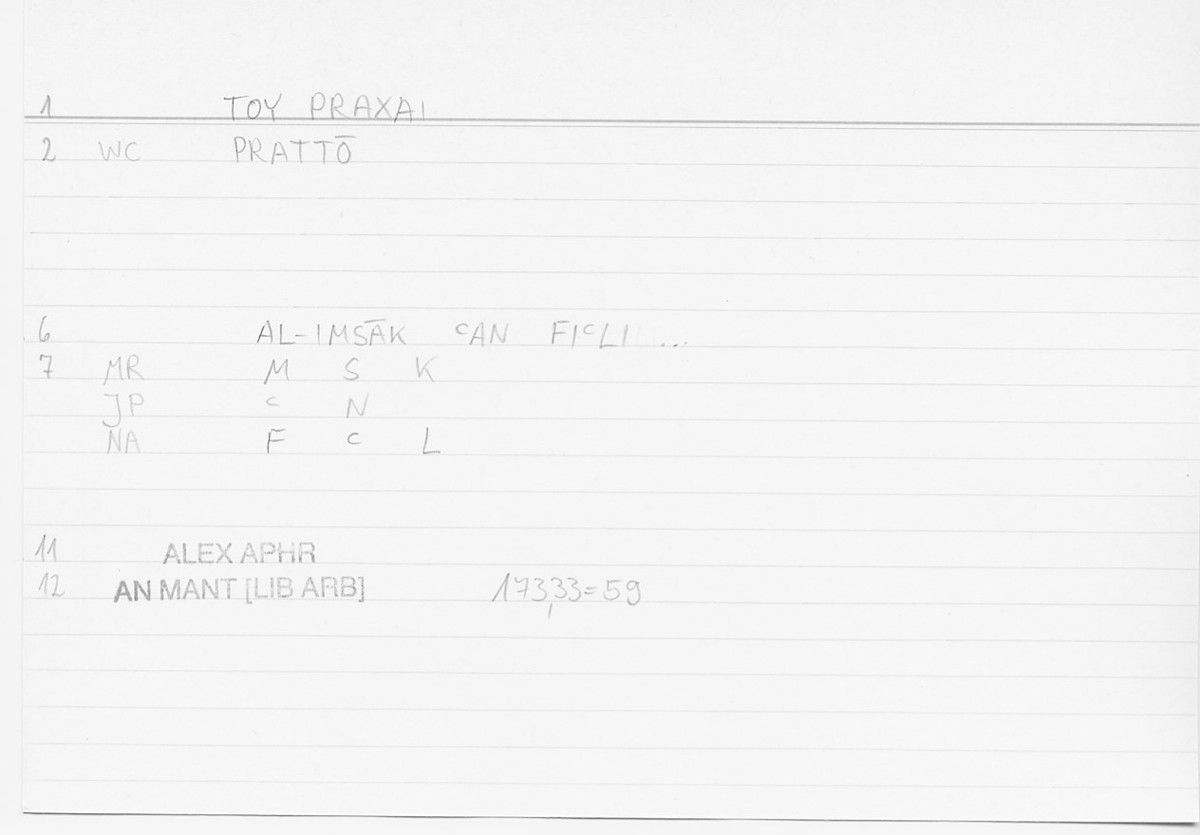 1 TOY PRAXAI
2 WC PRATTŌ
6 AL-IMSĀK ᶜAN FIᶜLI ...
7 MR M S K
JP ᶜ N
NA F ᶜ L
11 ALEX APHR
12 AN MANT [LIB ARB] 173,33=59